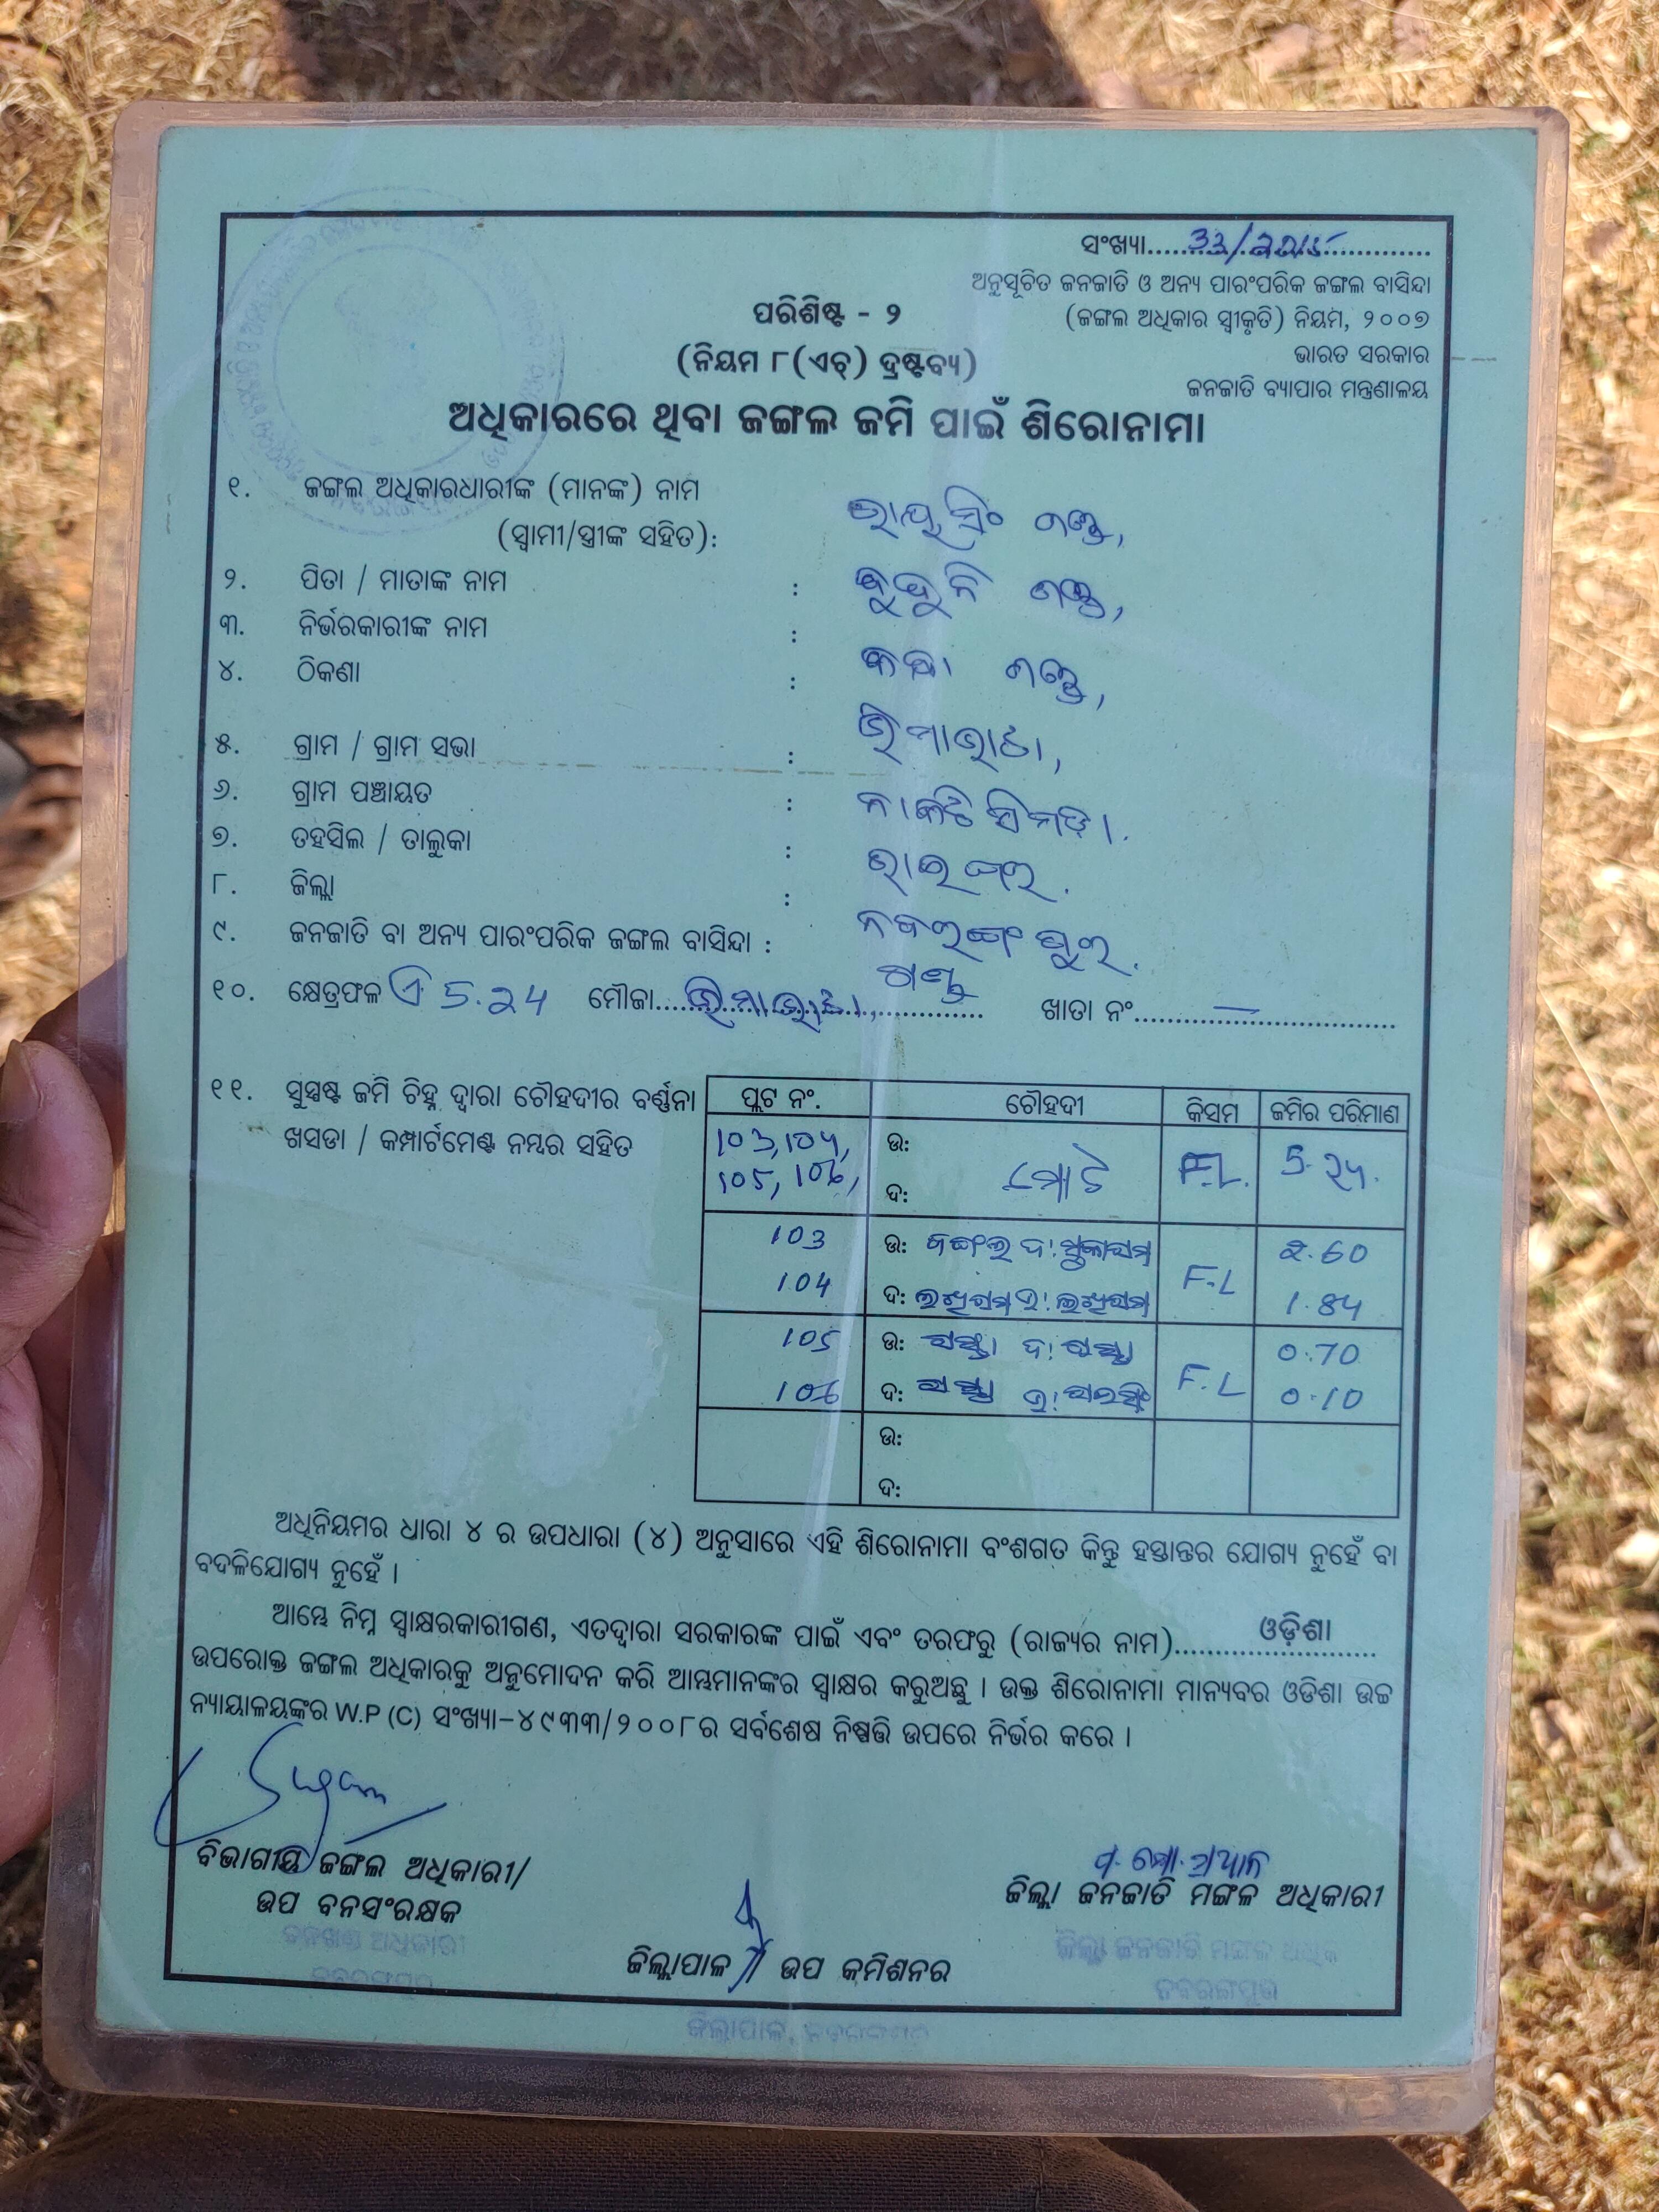 ସଂଖ୍ୟା......33/2015......
ଅନୁସୂଚିତ ଜନଜାତି ଓ ଅନ୍ୟ ପାରଂପରିକ ଜଙ୍ଗଲ ବାସିନ୍ଦା
ପରିଶିଷ୍ଟ - ୨
(ଜଙ୍ଗଲ ଅଧିକାର ସ୍ୱୀକୃତି) ନିୟମ, ୨୦୦୭
(ନିୟମ ୮(ଏଚ୍) ଦ୍ରଷ୍ଟବ୍ୟ)
ଭାରତ ସରକାର
ଜନଜାତି ବ୍ୟାପାର ମନ୍ତ୍ରଣାଳୟ
ଅଧିକାରରେ ଥିବା ଜଙ୍ଗଲ ଜମି ପାଇଁ ଶିରୋନାମା
୧. ଜଙ୍ଗଲ ଅଧିକାରଧାରୀଙ୍କ (ମାନଙ୍କ) ନାମ
(ସ୍ୱାମୀ/ସ୍ତ୍ରୀଙ୍କ ସହିତ):
୨. ପିତା / ମାତାଙ୍କ ନାମ :
୩. ନିର୍ଭରକାରୀଙ୍କ ନାମ :
୪. ଠିକଣା :
୫. ଗ୍ରାମ / ଗ୍ରାମ ସଭା :
୬. ଗ୍ରାମ ପଞ୍ଚାୟତ :
୭. ତହସିଲ / ତାଲୁକା : ରାଇଘର.
୮. ଜିଲ୍ଲା : ନବରଙ୍ଗପୁର.
୯. ଜନଜାତି ବା ଅନ୍ୟ ପାରଂପରିକ ଜଙ୍ଗଲ ବାସିନ୍ଦା : ଗଣ୍ଡ
୧୦. କ୍ଷେତ୍ରଫଳ ଏ 5.24 ମୌଜା...... ଖାତା ନଂ......—......
୧୧. ସୁସ୍ପଷ୍ଟ ଜମି ଚିହ୍ନ ଦ୍ୱାରା ଚୌହଦୀର ବର୍ଣ୍ଣନା
ଖସଡା / କମ୍ପାର୍ଟମେଣ୍ଟ ନମ୍ବର ସହିତ
ପ୍ଲଟ ନଂ. ଚୌହଦୀ କିସମ ଜମିର ପରିମାଣ
103, 104, ଉ:
105, 106, ଦ: ମୋଟ F.L. 5.24.
103 ଉ: ଜଙ୍ଗଲ ଦ: 2.60
104 ଦ: F.L 1.84
105 ଉ: ରାସ୍ତା ଦ: ରାସ୍ତା 0.70
106 ଦ: ରାସ୍ତା F.L 0.10
ଉ:
ଦ:
ଅଧିନିୟମର ଧାରା ୪ ର ଉପଧାରା (୪) ଅନୁସାରେ ଏହି ଶିରୋନାମା ବଂଶଗତ କିନ୍ତୁ ହସ୍ତାନ୍ତର ଯୋଗ୍ୟ ନୁହେଁ ବା
ବଦଳିଯୋଗ୍ୟ ନୁହେଁ ।
ଆମ୍ଭେ ନିମ୍ନ ସ୍ୱାକ୍ଷରକାରୀଗଣ, ଏତଦ୍ୱାରା ସରକାରଙ୍କ ପାଇଁ ଏବଂ ତରଫରୁ (ରାଜ୍ୟର ନାମ)......ଓଡ଼ିଶା......
ଉପରୋକ୍ତ ଜଙ୍ଗଲ ଅଧିକାରକୁ ଅନୁମୋଦନ କରି ଆମ୍ଭମାନଙ୍କର ସ୍ୱାକ୍ଷର କରୁଅଛୁ । ଉକ୍ତ ଶିରୋନାମା ମାନ୍ୟବର ଓଡିଶା ଉଚ୍ଚ
ନ୍ୟାୟାଳୟଙ୍କର W.P (C) ସଂଖ୍ୟା-୪୯୩୩/୨୦୦୮ର ସର୍ବଶେଷ ନିଷ୍ପତ୍ତି ଉପରେ ନିର୍ଭର କରେ ।
ବିଭାଗୀୟ ଜଙ୍ଗଲ ଅଧିକାରୀ/
ଉପ ବନସଂରକ୍ଷକ
ଜିଲ୍ଲା ଜନଜାତି ମଙ୍ଗଳ ଅଧିକାରୀ
ଜିଲ୍ଲାପାଳ / ଉପ କମିଶନର
ବନଖଣ୍ଡ ଅଧିକାରୀ
ଜିଲ୍ଲା ଜନଜାତି ମଙ୍ଗଳ
ନବରଙ୍ଗପୁର
ଜିଲ୍ଲାପାଳ, ନବରଙ୍ଗପୁର